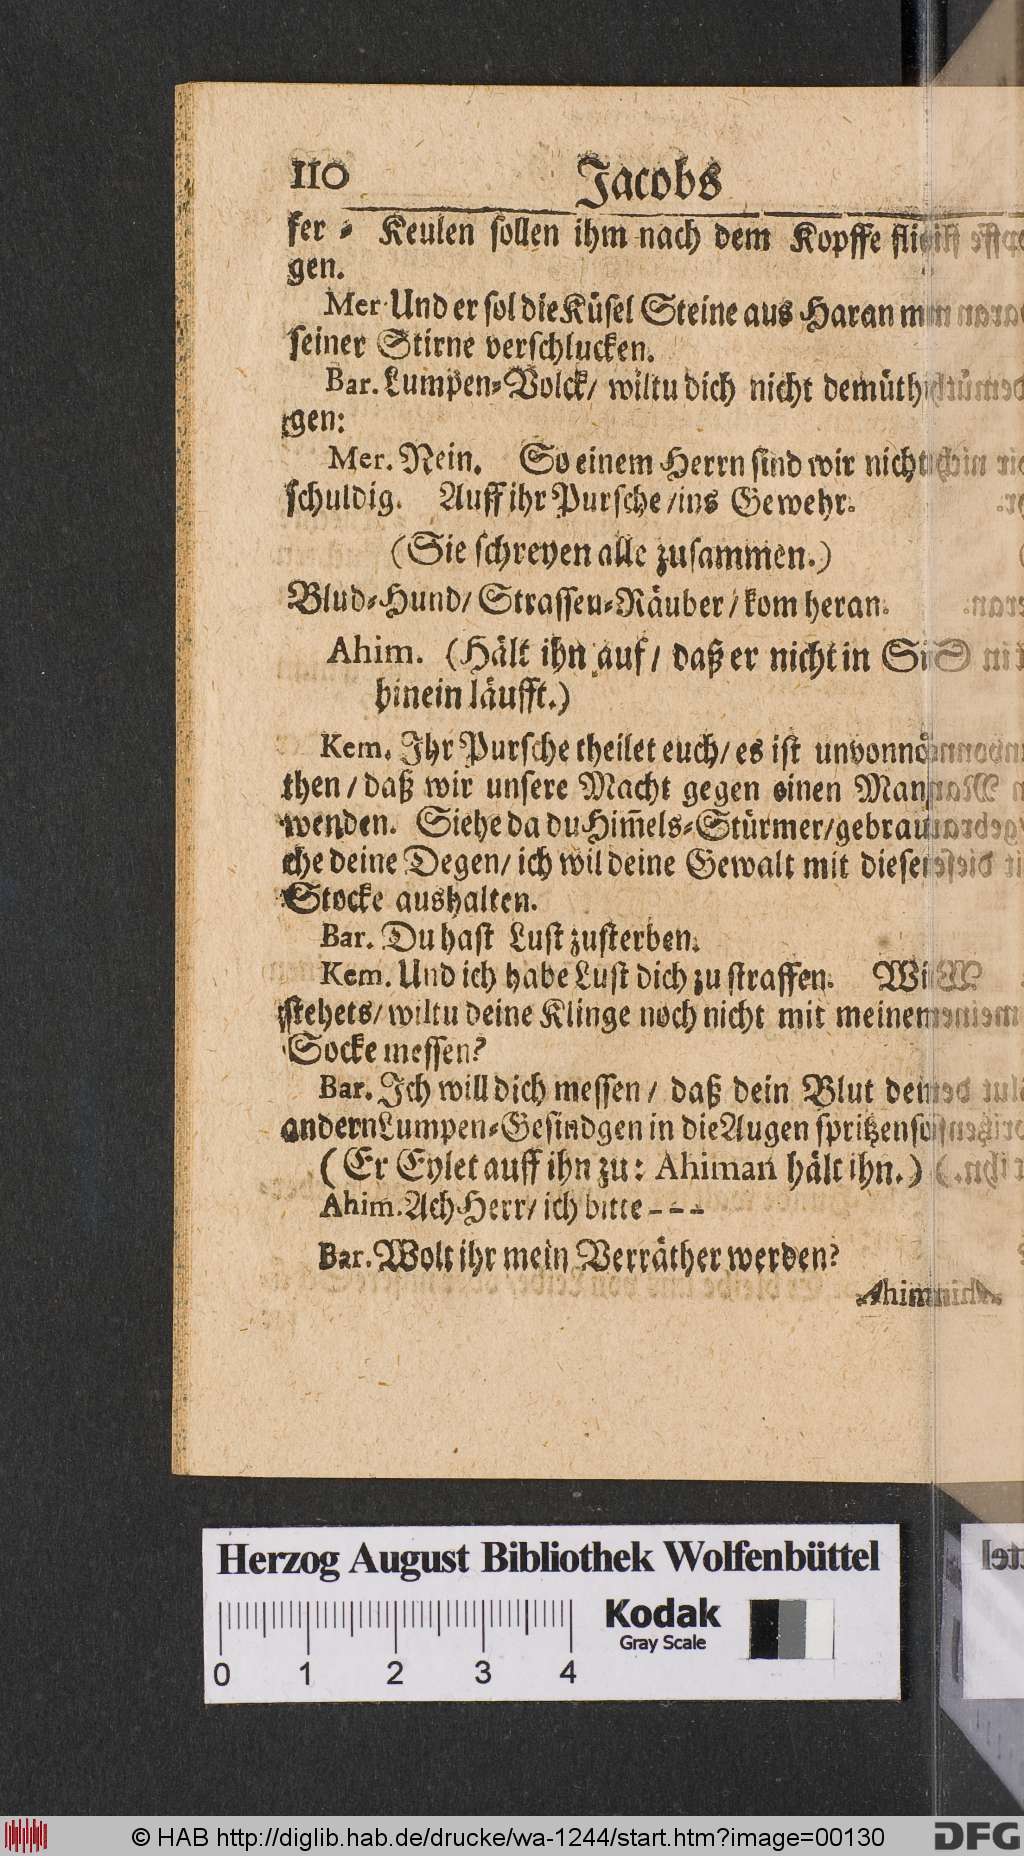 110 Jacobs
fer = Keulen sollen ihm nach dem Kopffe flie
gen.
Mer Und er sol die Küsel Steine aus Haran mit
seiner Stirne verschlucken.
Bar. Lumpen=Volck/ wiltu dich nicht demüthi
gen:
Mer. Nein. So einem Herrn sind wir nichts
schuldig. Auff ihr Pursche /ins Gewehr.
(Sie schreyen alle zusammen.)
Blud=Hund/ Strassen=Räuber / kom heran.
Ahim. (Hält ihn auf / daß er nicht in
hinein läufft.)
Kem. Ihr Pursche theilet euch/ es ist unvonnö
then / daß wir unsere Macht gegen einen Mann
wenden. Siehe da du Him̃els=Stürmer/gebrau
che deine Degen/ ich wil deine Gewalt mit diesen
Stocke aushalten.
Bar. Du hast Lust zusterben.
Kem. Und ich habe Lust dich zu straffen. Wie
stehets/ wiltu deine Klinge noch nicht mit meinem
Socke messen?
Bar. Ich will dich messen / daß dein Blut dem
andern Lumpen=Gesindgen in die Augen spritzen sol
(Er Eylet auff ihn zu: Ahiman hält ihn.)
Ahim. Ach Herr/ ich bitte - - -
Bar. Wolt ihr mein Verräther werden?
Ahim.
Herzog August Bibliothek Wolfenbüttel
Kodak
Gray Scale
0 1 2 3 4
© HAB http://diglib.hab.de/drucke/wa-1244/start.htm?image=00130
DFG